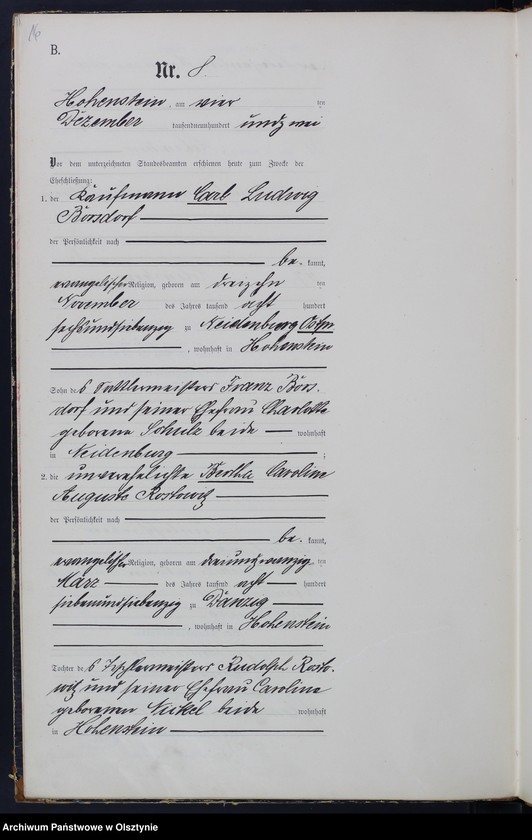 B.
Nr. 8.
Hohenstein, am vier ten
Dezember tausendneunhundert undzwei
Vor dem unterzeichneten Standesbeamten erschienen heute zum Zwecke der
Eheschließung:
1. der Kaufmann Carl Ludwig
Börsdorf
der Persönlichkeit nach
be- kannt,
evangelischer Religion, geboren am dreizehn ten
November des Jahres tausend acht hundert
sechsundsiebenzig zu Neidenburg Ostpr
, wohnhaft in Hohenstein
Sohn des Sattlermeisters Franz Börs-
dorf und seiner Ehefrau Charlotte
geborene Schulz beide wohnhaft
in Neidenburg ;
2. die unverehelichte Bertha Caroline
Auguste Rostowitz
der Persönlichkeit nach
be- kannt,
evangelischer Religion, geboren am dreiundzwanzig ten
März des Jahres tausend acht hundert
siebenundsiebenzig zu Danzig
, wohnhaft in Hohenstein
Tochter des Tischlermeisters Rudolph Rosto-
witz und seiner Ehefrau Caroline
geborenen Nickel beide wohnhaft
in Hohenstein
Archiwum Państwowe w Olsztynie